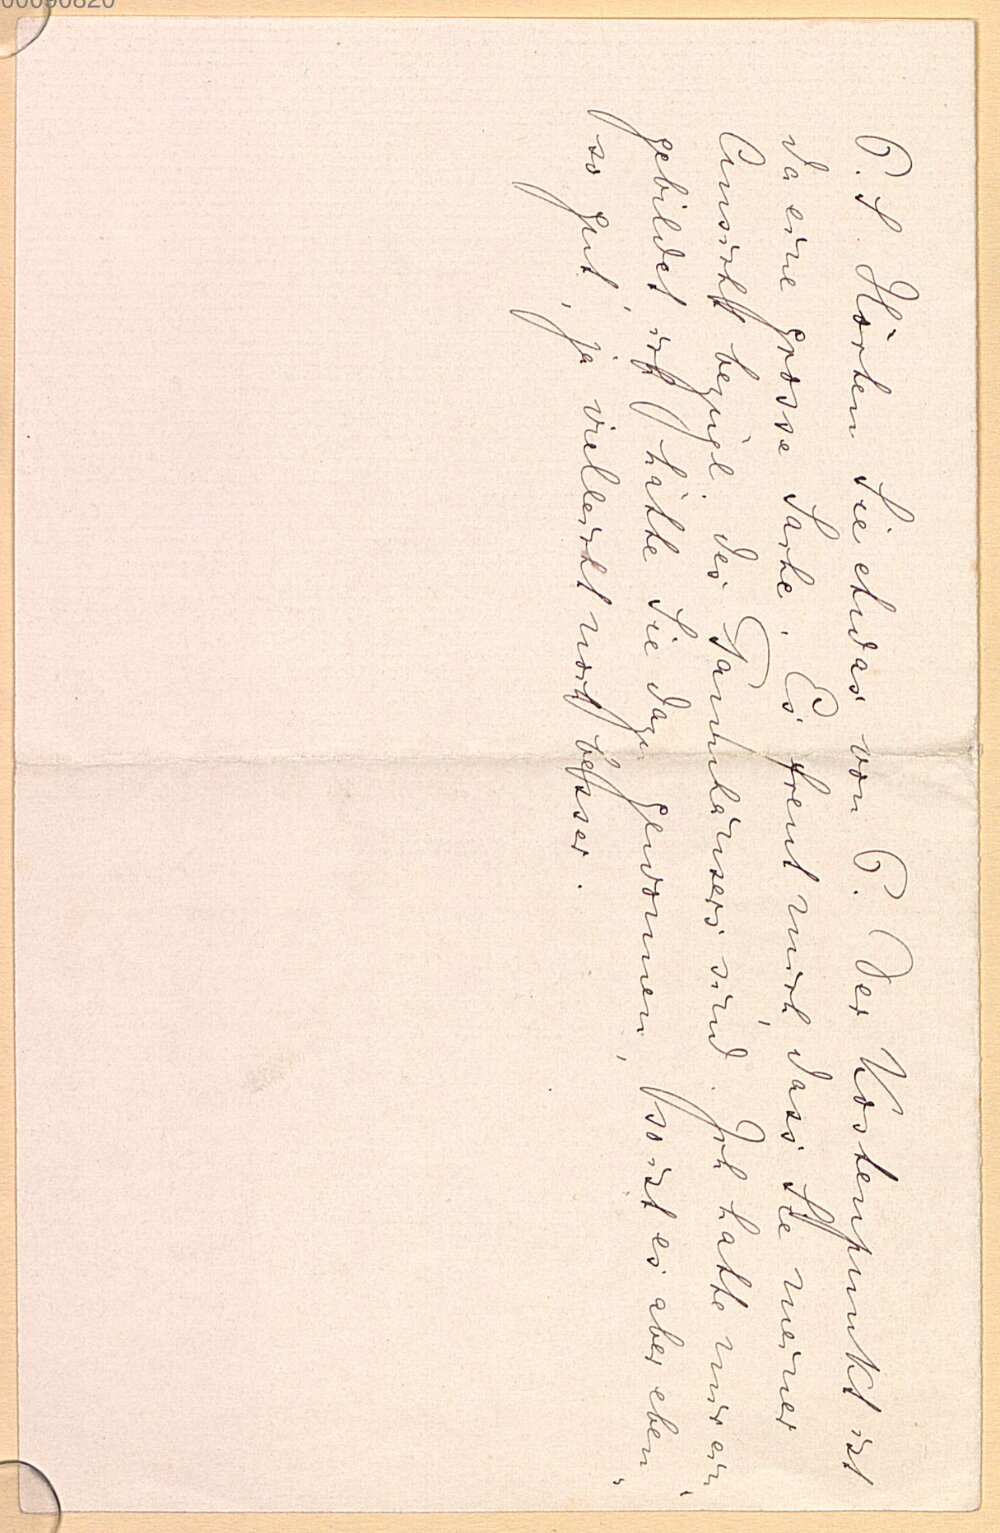 00090820
P. S. Hörten Sie etwas von P. Der Kostenpunkt ist
da eine grosse Sache. Es freut mich dass Sie meiner
Ansicht bezügl. des Tannhäusers sind. Ich hatte mir ein-
gebildet ich hätte Sie dazu gewonnen, so ist es aber eben
so gut, ja vielleicht noch besser.